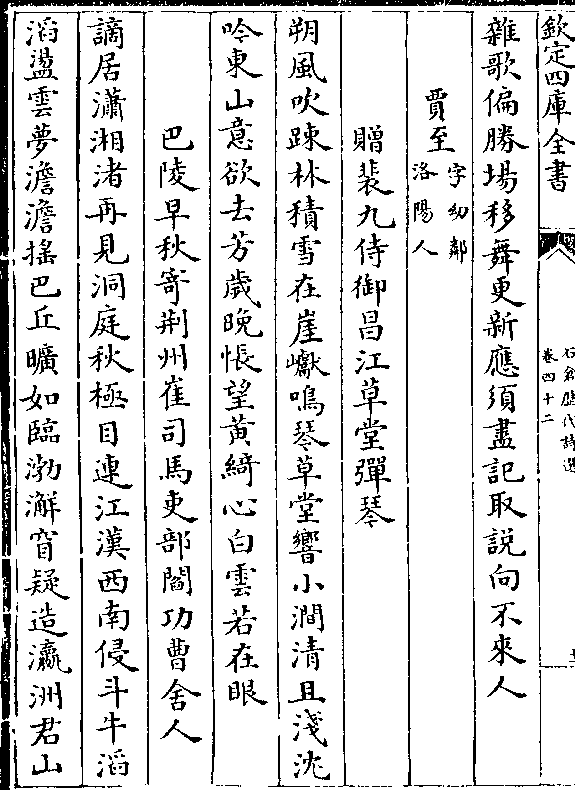 欽定四庫全書
石倉歷代詩選
卷四十二
雜歌偏勝場移舞更新應須盡記取説向不來人
賈至
字幼鄰
洛陽人
贈裴九侍御昌江草堂彈琴
朔風吹踈林積雪在崖巘鳴琴草堂響小澗清且淺沈
吟東山意欲去芳歲晚悵望黄綺心白雲若在眼
巴陵早秋寄荆州崔司馬吏部閻功曹舍人
謫居瀟湘渚再見洞庭秋極目連江漢西南侵斗牛滔
滔盪雲夢澹澹摇巴丘曠如臨渤澥窅疑造瀛洲君山